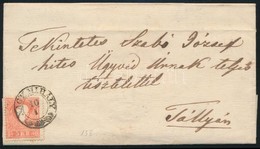 Tekintetes Szabó József
hites Ügyvéd Urnak telyes
tisztelettel
Tállyán